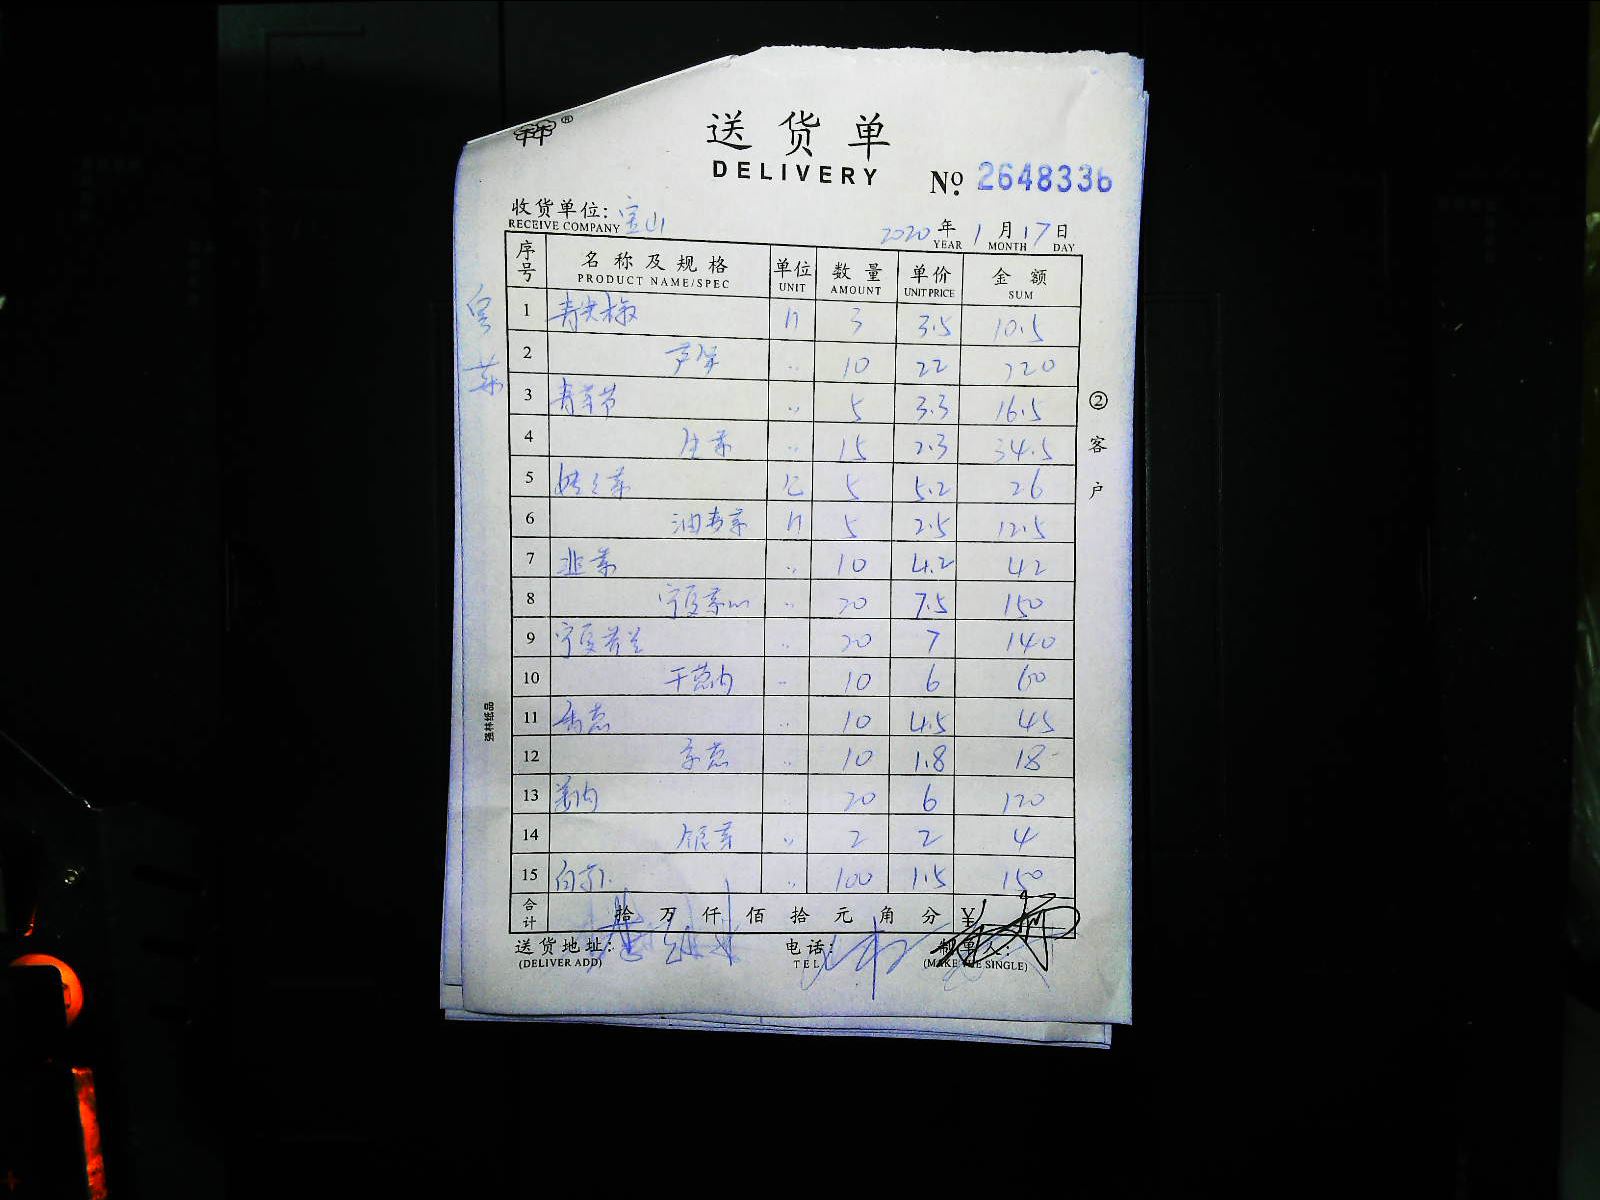 送货单
DELIVERY
№ 2648336
收货单位: 宝山
RECEIVE COMPANY
2020年1月17日
YEAR MONTH DAY
序号 名称及规格 单位 数量 单价 金额
PRODUCT NAME/SPEC UNIT AMOUNT UNIT PRICE SUM
1 青尖椒 3 3.5 10.5
2 芦笋 10 22 220
3 5 3.3 16.5
4 15 2.3 34.5
5 娃娃菜 5 5.2 26
6 油麦菜 5 2.5 12.5
7 韭菜 10 4.2 42
8 宁夏菜心 20 7.5 150
9 宁夏芥兰 20 7 140
10 干葱肉 10 6 60
11 香葱 10 4.5 45
12 京葱 10 1.8 18
13 姜肉 20 6 120
14 银芽 2 2 4
15 白萝卜 100 1.5 150
合计 拾万仟佰拾元角分 ¥
送货地址: 电话: 制单人:
(DELIVER ADD) TEL (MAKE THE SINGLE)
②客户
强林纸品